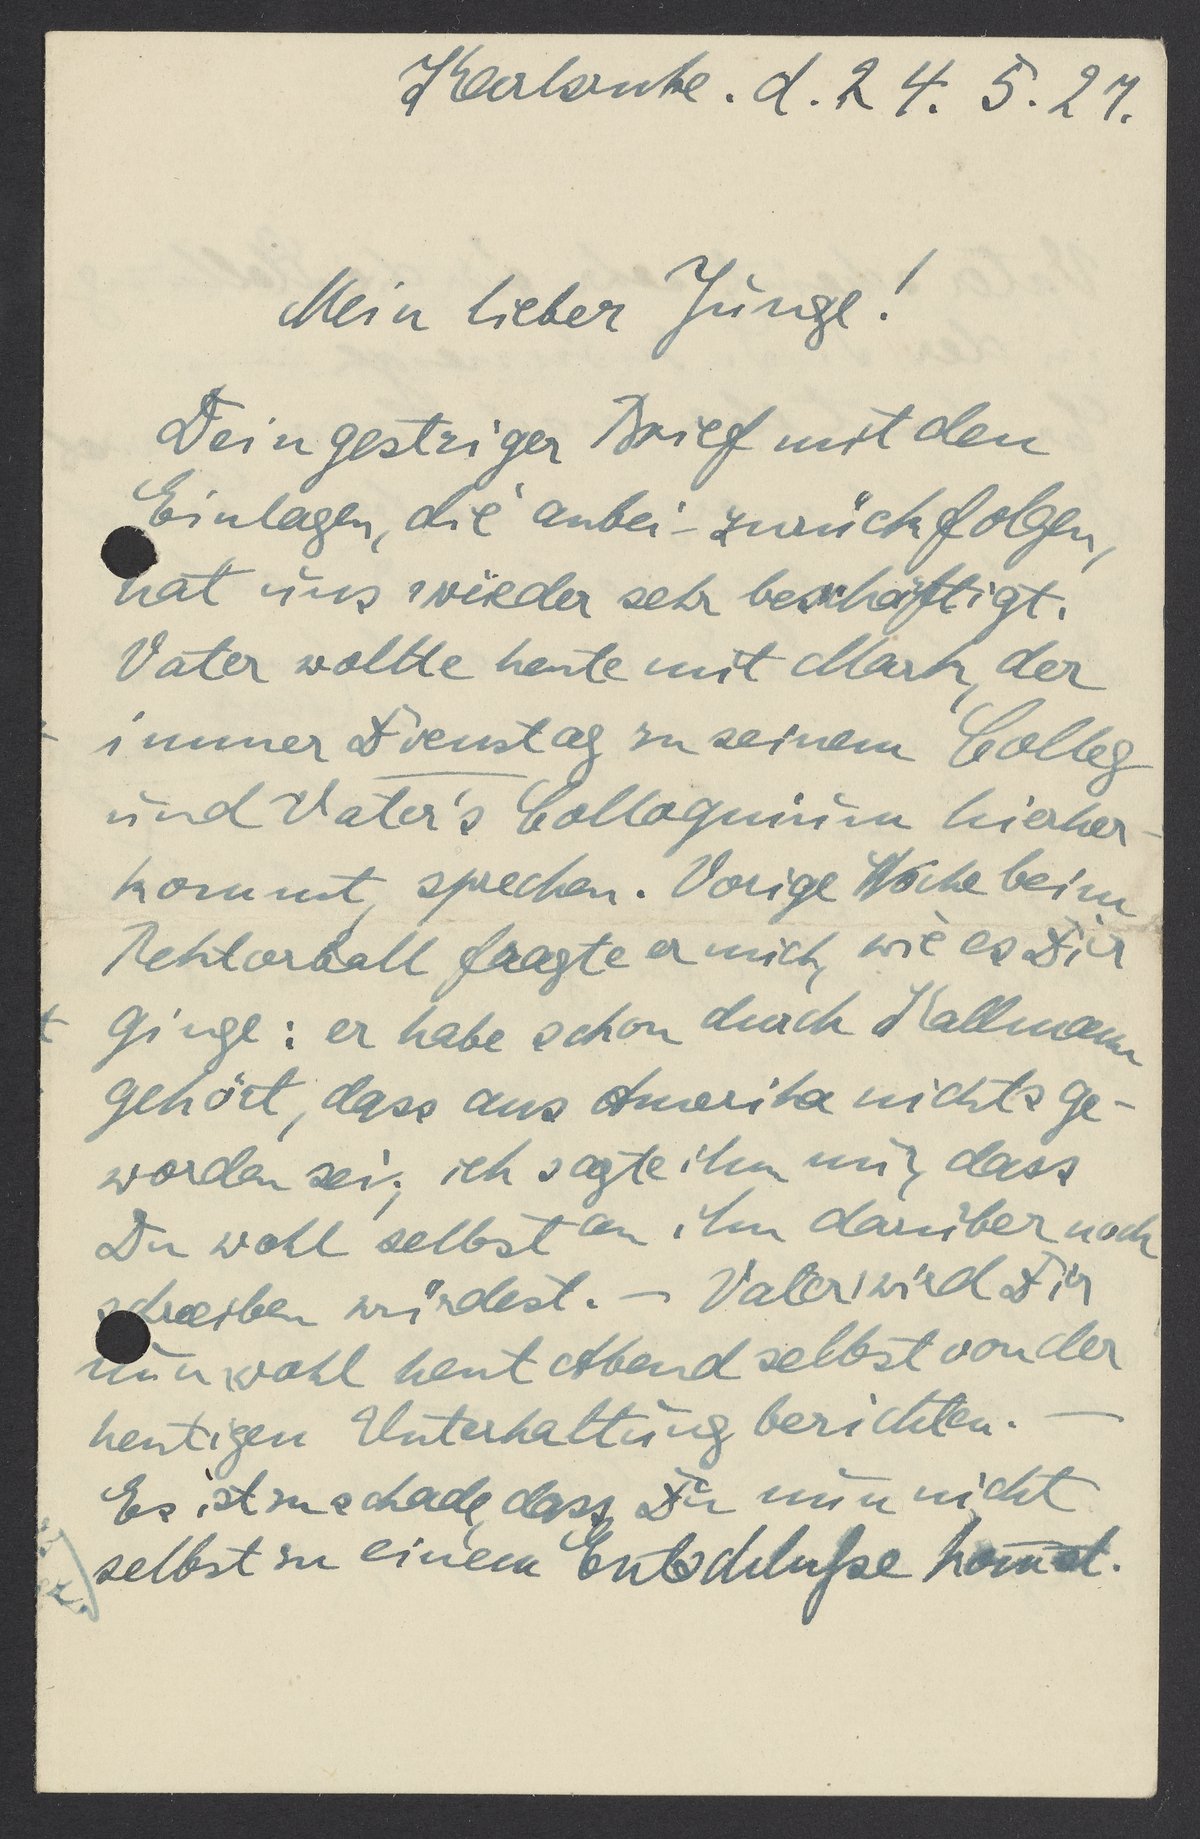 Karlsruhe. d. 24. 5. 27.
Mein lieber Junge!
Dein gestriger Brief mit den
Einlagen, die anbei zurückfolgen,
hat uns wieder sehr beschäftigt.
Vater wollte heute mit Mark, der
immer Dienstag zu seinem Colleg
und Vater's Colloquium hierher-
kommt, sprechen. Vorige Woche beim
Rektorball fragte er mich, wie es Dir
ginge: er habe schon durch Kallmann
gehört, dass aus Amerika nichts ge-
worden sei; ich sagte ihm nur, dass
Du wohl selbst an ihn darüber noch
schreiben würdest. – Vater wird Dir
nun wohl heut Abend selbst von der
heutigen Unterhaltung berichten. –
Es ist zu schade, dass Du nun nicht
selbst zu einem Entschlusse kommst.